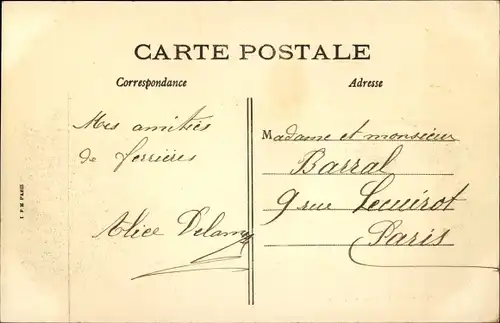 CARTE POSTALE
Correspondance
Adresse
Mes amitiés
de ferrières
Alice
Madame et monsieur
Barral
9 rue Lecuirot
Paris